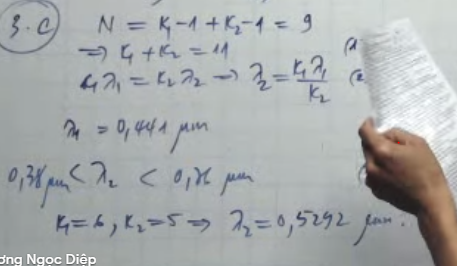 3. C N = K₁-1 + K₂-1 = 9
⇒ K₁ + K₂ = 11
K₁λ₁ = K₂λ₂ → λ₂ = K₁λ₁/K₂
λ₁ = 0,441 μm
0,38 μm < λ₂ < 0,76 μm
K₁=6, K₂=5 ⇒ λ₂ = 0,5292 μm.
ơng Ngọc Diệp